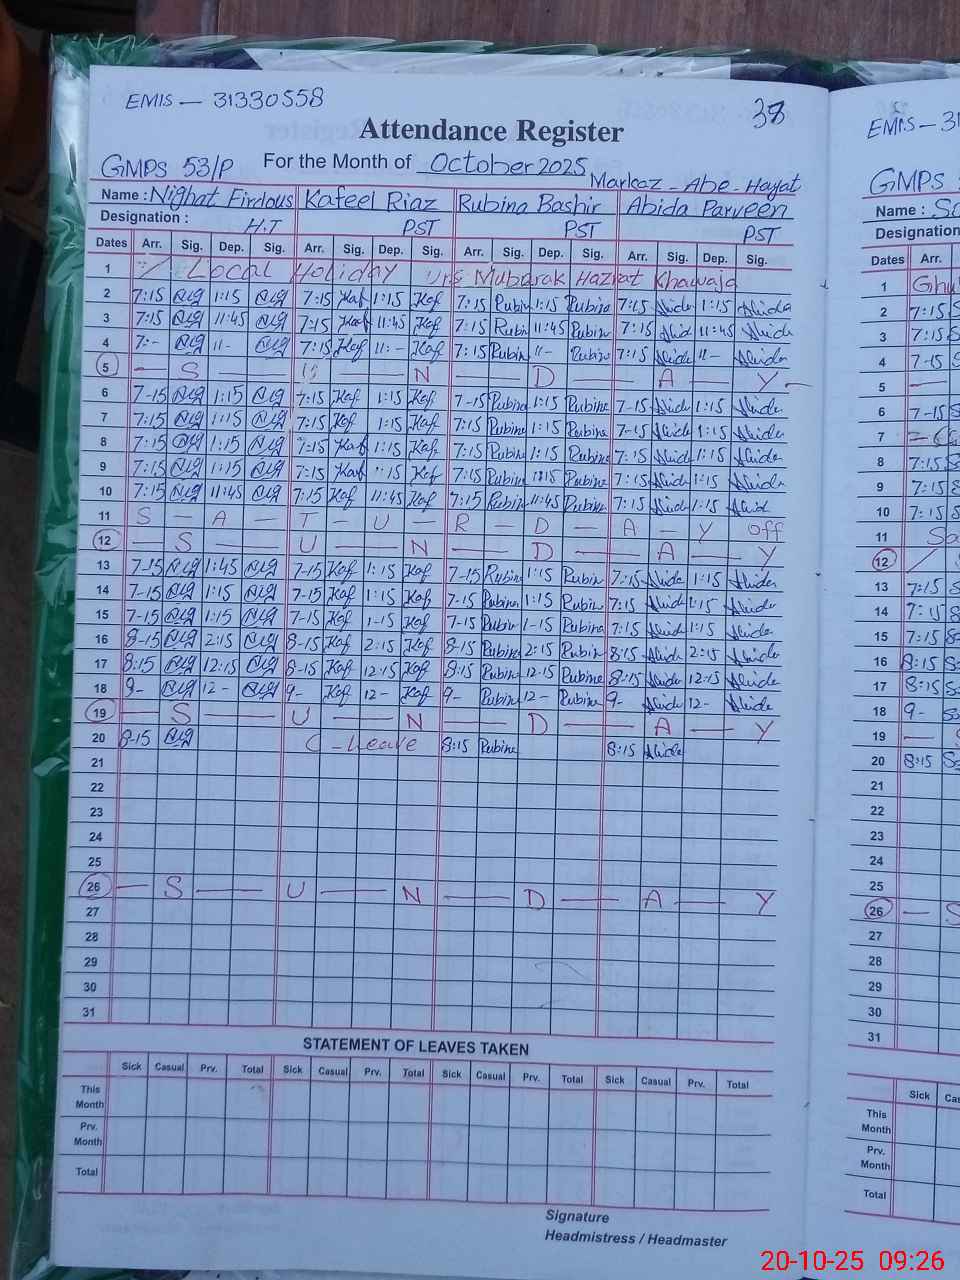 EMIS — 31330558
38
Attendance Register
GMPS 53/P For the Month of October 2025
Markaz - Abe - Hayat
Name : Nighat Firdous Kafeel Riaz Rubina Bashir Abida Parveen
Designation : H.T PST PST PST
Dates Arr. Sig. Dep. Sig. Arr. Sig. Dep. Sig. Arr. Sig. Dep. Sig. Arr. Sig. Dep. Sig.
1 Local Holiday Urs Mubarak Hazrat Khawaja
2 7:15 1:15 7:15 Kaf 1:15 Kaf 7:15 Rubin 1:15 Rubina 7:15 Abida 1:15 Abida
3 7:15 11:45 7:15 Kaf 11:45 Kaf 7:15 Rubin 11:45 Rubina 7:15 Abid 11:45 Abid
4 7:- 11- 7:15 Kaf 11:- Kaf 7:15 Rubin 11- Rubin 7:15 Abida 11- Abida
5 — S — U — N — D — A — Y —
6 7-15 1:15 7:15 Kaf 1:15 Kaf 7-15 Rubina 1:15 Rubina 7-15 Abida 1:15 Abida
7 7:15 1:15 7:15 Kaf 1:15 Kaf 7:15 Rubina 1:15 Rubina 7-15 Abida 1:15 Abida
8 7:15 1:15 7:15 Kaf 1:15 Kaf 7:15 Rubin 1:15 Rubina 7:15 Abida 1:15 Abida
9 7:15 1:15 7:15 Kaf 1:15 Kaf 7:15 Rubina 1:15 Rubina 7:15 Abida 1:15 Abida
10 7:15 11:45 7:15 Kaf 11:45 Kaf 7:15 Rubin 11:45 Rubina 7:15 Abida 1:15 Abid
11 S — A — T — U — R — D — A — Y off
12 — S — U — N — D — A — Y
13 7-15 1:45 7-15 Kaf 1:15 Kaf 7-15 Rubina 1:15 Rubin 7:15 Abida 1:15 Abida
14 7-15 1:15 7-15 Kaf 1:15 Kaf 7-15 Rubina 1:15 Rubin 7:15 Abida 1:15 Abida
15 7-15 1:15 7-15 Kaf 1-15 Kaf 7-15 Rubin 1-15 Rubin 7:15 Abida 1:15 Abida
16 8-15 2:15 8-15 Kaf 2:15 Kaf 8-15 Rubina 2:15 Rubin 8:15 Abida 2:15 Abida
17 8:15 12:15 8-15 Kaf 12:15 Kaf 8:15 Rubina 12-15 Rubina 8:15 Abida 12:15 Abida
18 9- 12- 9- Kaf 12- Kaf 9- Rubina 12- Rubina 9- Abida 12- Abida
19 — S — U — N — D — A — Y
20 8-15 C-Leave 8:15 Rubina 8:15 Abida
21
22
23
24
25
26 — S — U — N — D — A — Y
27
28
29
30
31
STATEMENT OF LEAVES TAKEN
Sick Casual Prv. Total Sick Casual Prv. Total Sick Casual Prv. Total Sick Casual Prv. Total
This Month
Prv. Month
Total
Signature
Headmistress / Headmaster
EMIS — 31
GMPS
Name : Sa
Designation
Dates Arr.
1 Ghu
2 7:15
3 7:15
4 7-15
5 —
6 7-15
7
8 7:15
9 7:15
10 7:15
11 Sa
12
13 7:15
14 7:15
15 7:15
16 8:15
17 8:15
18 9-
19 —
20 8:15
21
22
23
24
25
26 — S
27
28
29
30
31
Sick Cas
This Month
Prv. Month
Total
20-10-25 09:26